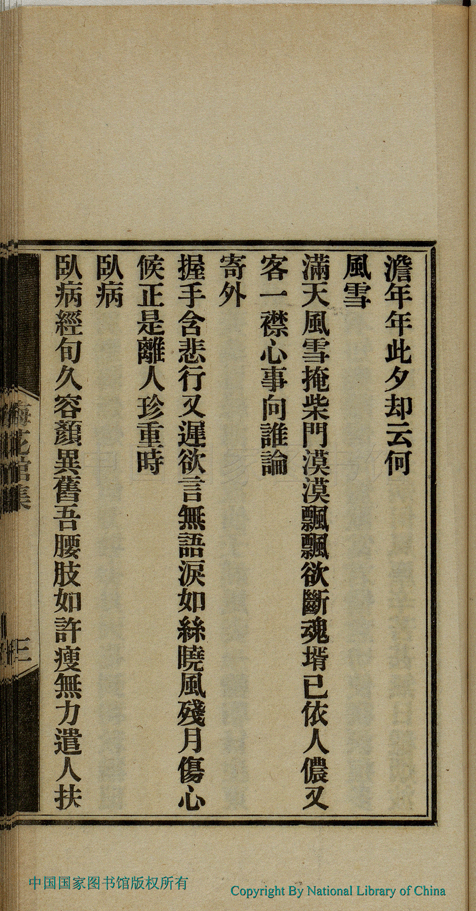 澹年年此夕却云何
風雪
滿天風雪掩柴門漠漠飄飄欲斷魂壻已依人儂又
客一襟心事向誰論
寄外
握手含悲行又遲欲言無語淚如絲曉風殘月傷心
候正是離人珍重時
臥病
臥病經旬久容顏異舊吾腰肢如許瘦無力遣人扶
梅花館集
三
中国国家图书馆版权所有
Copyright By National Library of China